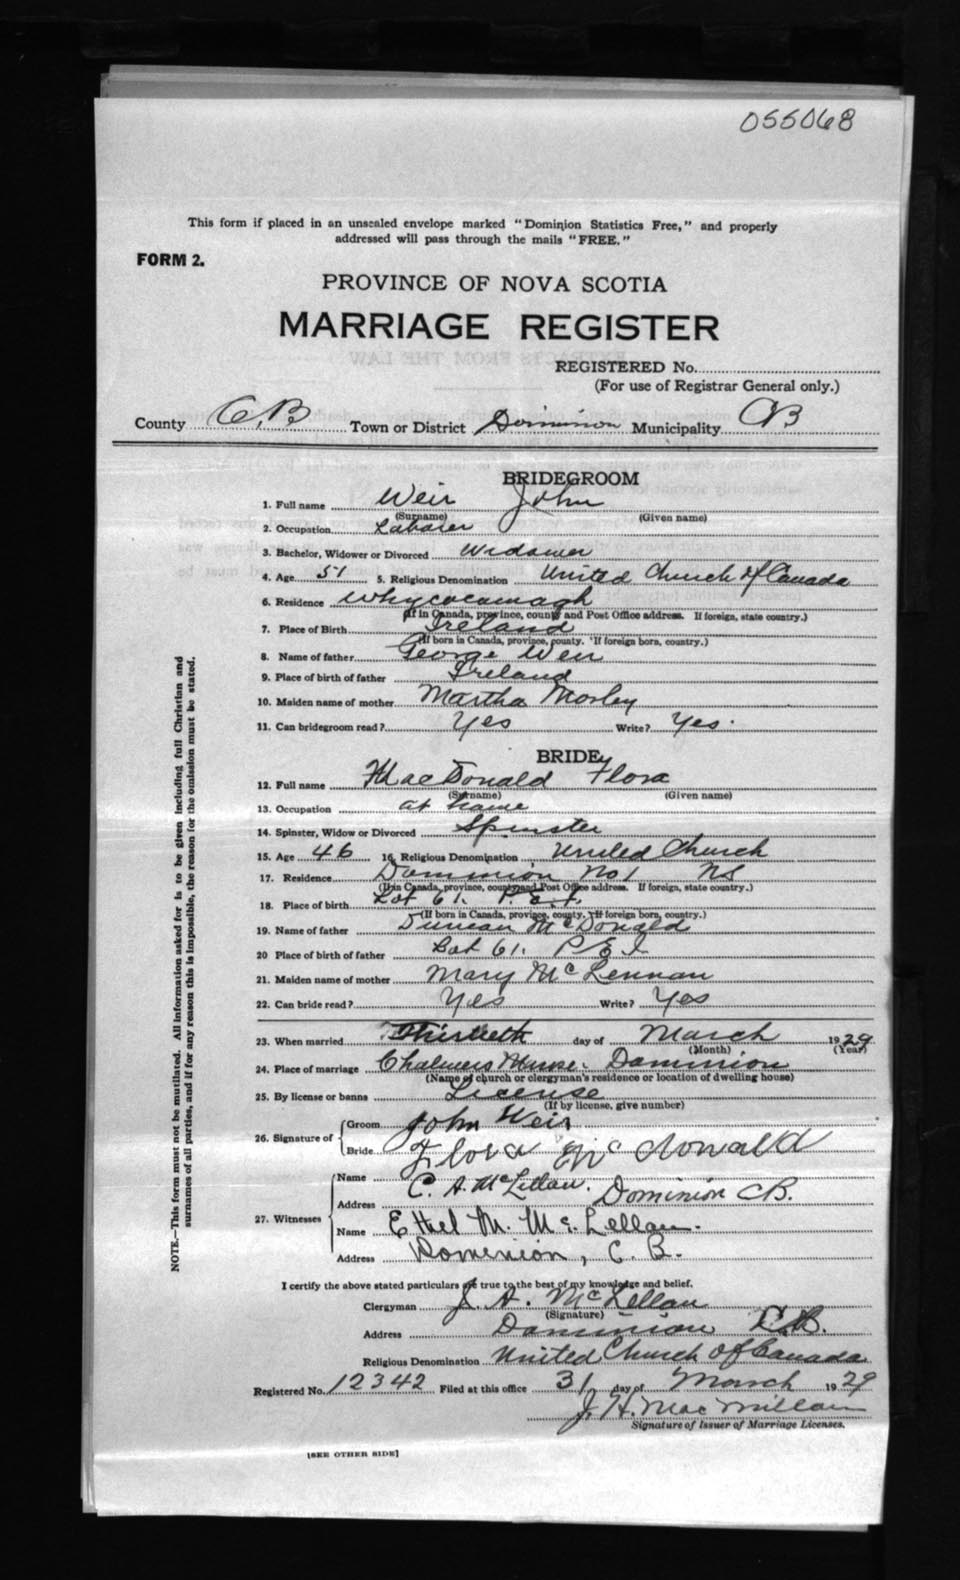 055068
This form if placed in an unsealed envelope marked "Dominion Statistics Free," and properly
addressed will pass through the mails "FREE."
FORM 2.
PROVINCE OF NOVA SCOTIA
MARRIAGE REGISTER
REGISTERED No.
(For use of Registrar General only.)
County C.B. Town or District Dominion Municipality CB
BRIDEGROOM
1. Full name Weir John
(Surname) (Given name)
2. Occupation Laborer
3. Bachelor, Widower or Divorced Widower
4. Age 51 5. Religious Denomination United Church of Canada
6. Residence Whycocomagh
(If in Canada, province, county and Post Office address. If foreign, state country.)
7. Place of Birth Ireland
(If born in Canada, province, county. If foreign born, country.)
8. Name of father George Weir
9. Place of birth of father Ireland
10. Maiden name of mother Martha Morley
11. Can bridegroom read? Yes Write? Yes.
BRIDE
12. Full name MacDonald Flora
(Surname) (Given name)
13. Occupation at home
14. Spinster, Widow or Divorced Spinster
15. Age 46 16. Religious Denomination United Church
17. Residence Dominion No 1 NS
(If in Canada, province, county and Post Office address. If foreign, state country.)
18. Place of birth Lot 61. P.E.I.
(If born in Canada, province, county. If foreign born, country.)
19. Name of father Duncan McDonald
20 Place of birth of father Lot 61. P E I
21. Maiden name of mother Mary McLennan
22. Can bride read? Yes Write? Yes
23. When married Thirtieth day of March 1929
(Month) (Year)
24. Place of marriage Chalmers Manse. Dominion
(Name of church or clergyman's residence or location of dwelling house)
25. By license or banns License
(If by license, give number)
26. Signature of Groom John Weir
Bride Flora McDonald
27. Witnesses Name C. A. McLellan.
Address Dominion CB.
Name Ethel M. McLellan.
Address Dominion, C. B.
I certify the above stated particulars are true to the best of my knowledge and belief.
Clergyman J. A. McLellan
(Signature)
Address Dominion C.B.
Religious Denomination United Church of Canada
Registered No. 12342 Filed at this office 31 day of March 1929
J. H. MacMillan
Signature of Issuer of Marriage Licenses.
[SEE OTHER SIDE]
NOTE.—This form must not be mutilated. All information asked for is to be given including full Christian and
surnames of all parties, and if for any reason this is impossible, the reason for the omission must be stated.